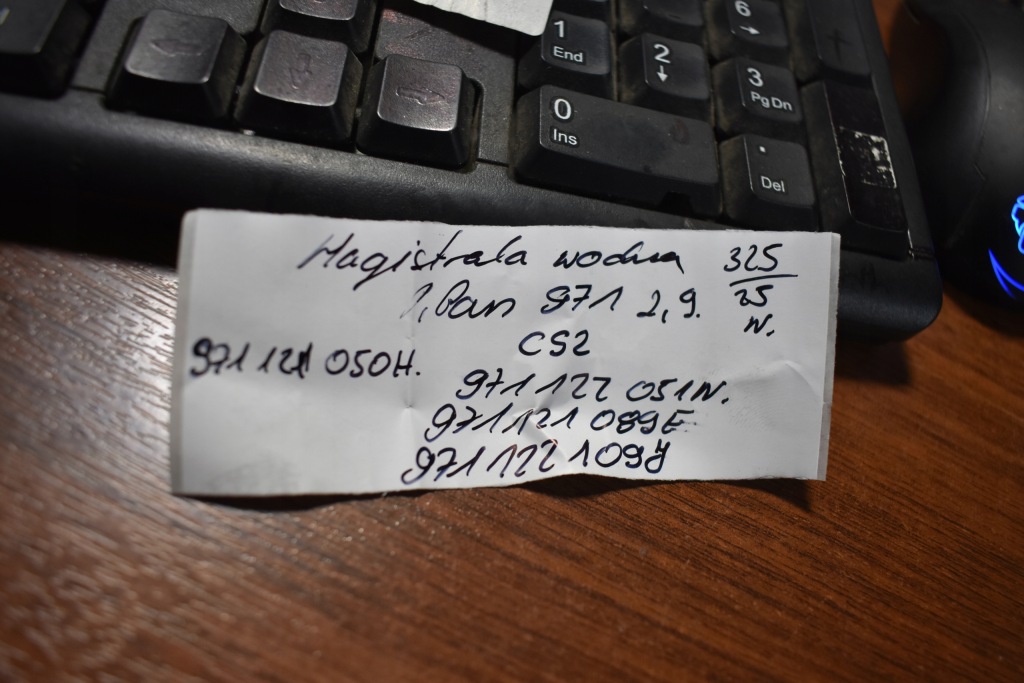 6
1
End
2
3
Pg Dn
0
Ins
.
Del
Magistrala wodna 325
25
N.
971 2,9.
CS2
971 121 050H.
971 122 051N.
971 121 089E
971 122 109Y